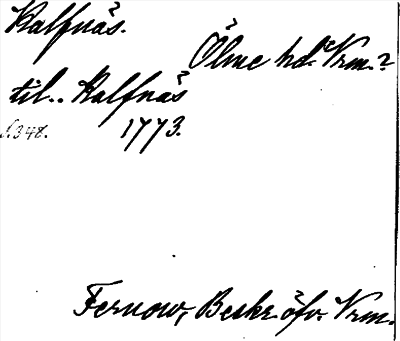 Kalfnäs.
Ölme hd. Vrm.?
til.. Kalfnäs
s. 348. 1773.
Fernow, Beskr. öfv. Vrm.